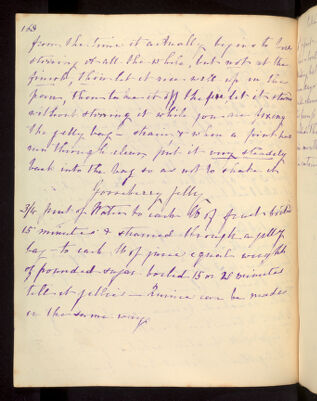 163
from the time it actually begins to boil
stirring it all the while, but not at the
finish, then let it rise well up in the
pan, then take it off the fire let it stand
without stirring it while you are fixing
the jelly bag – strain & when a pint has
run through clear, put it very steadily
back into the bag so as not to shake it
Gooseberry Jelly
3/4 pint of Water to each lb of fruit boiled
15 minutes & strained through a jelly
bag – to each lb of juice equal weight
of pounded sugar boiled 15 or 25 minutes
till it jellies – Quince can be made
in the same way